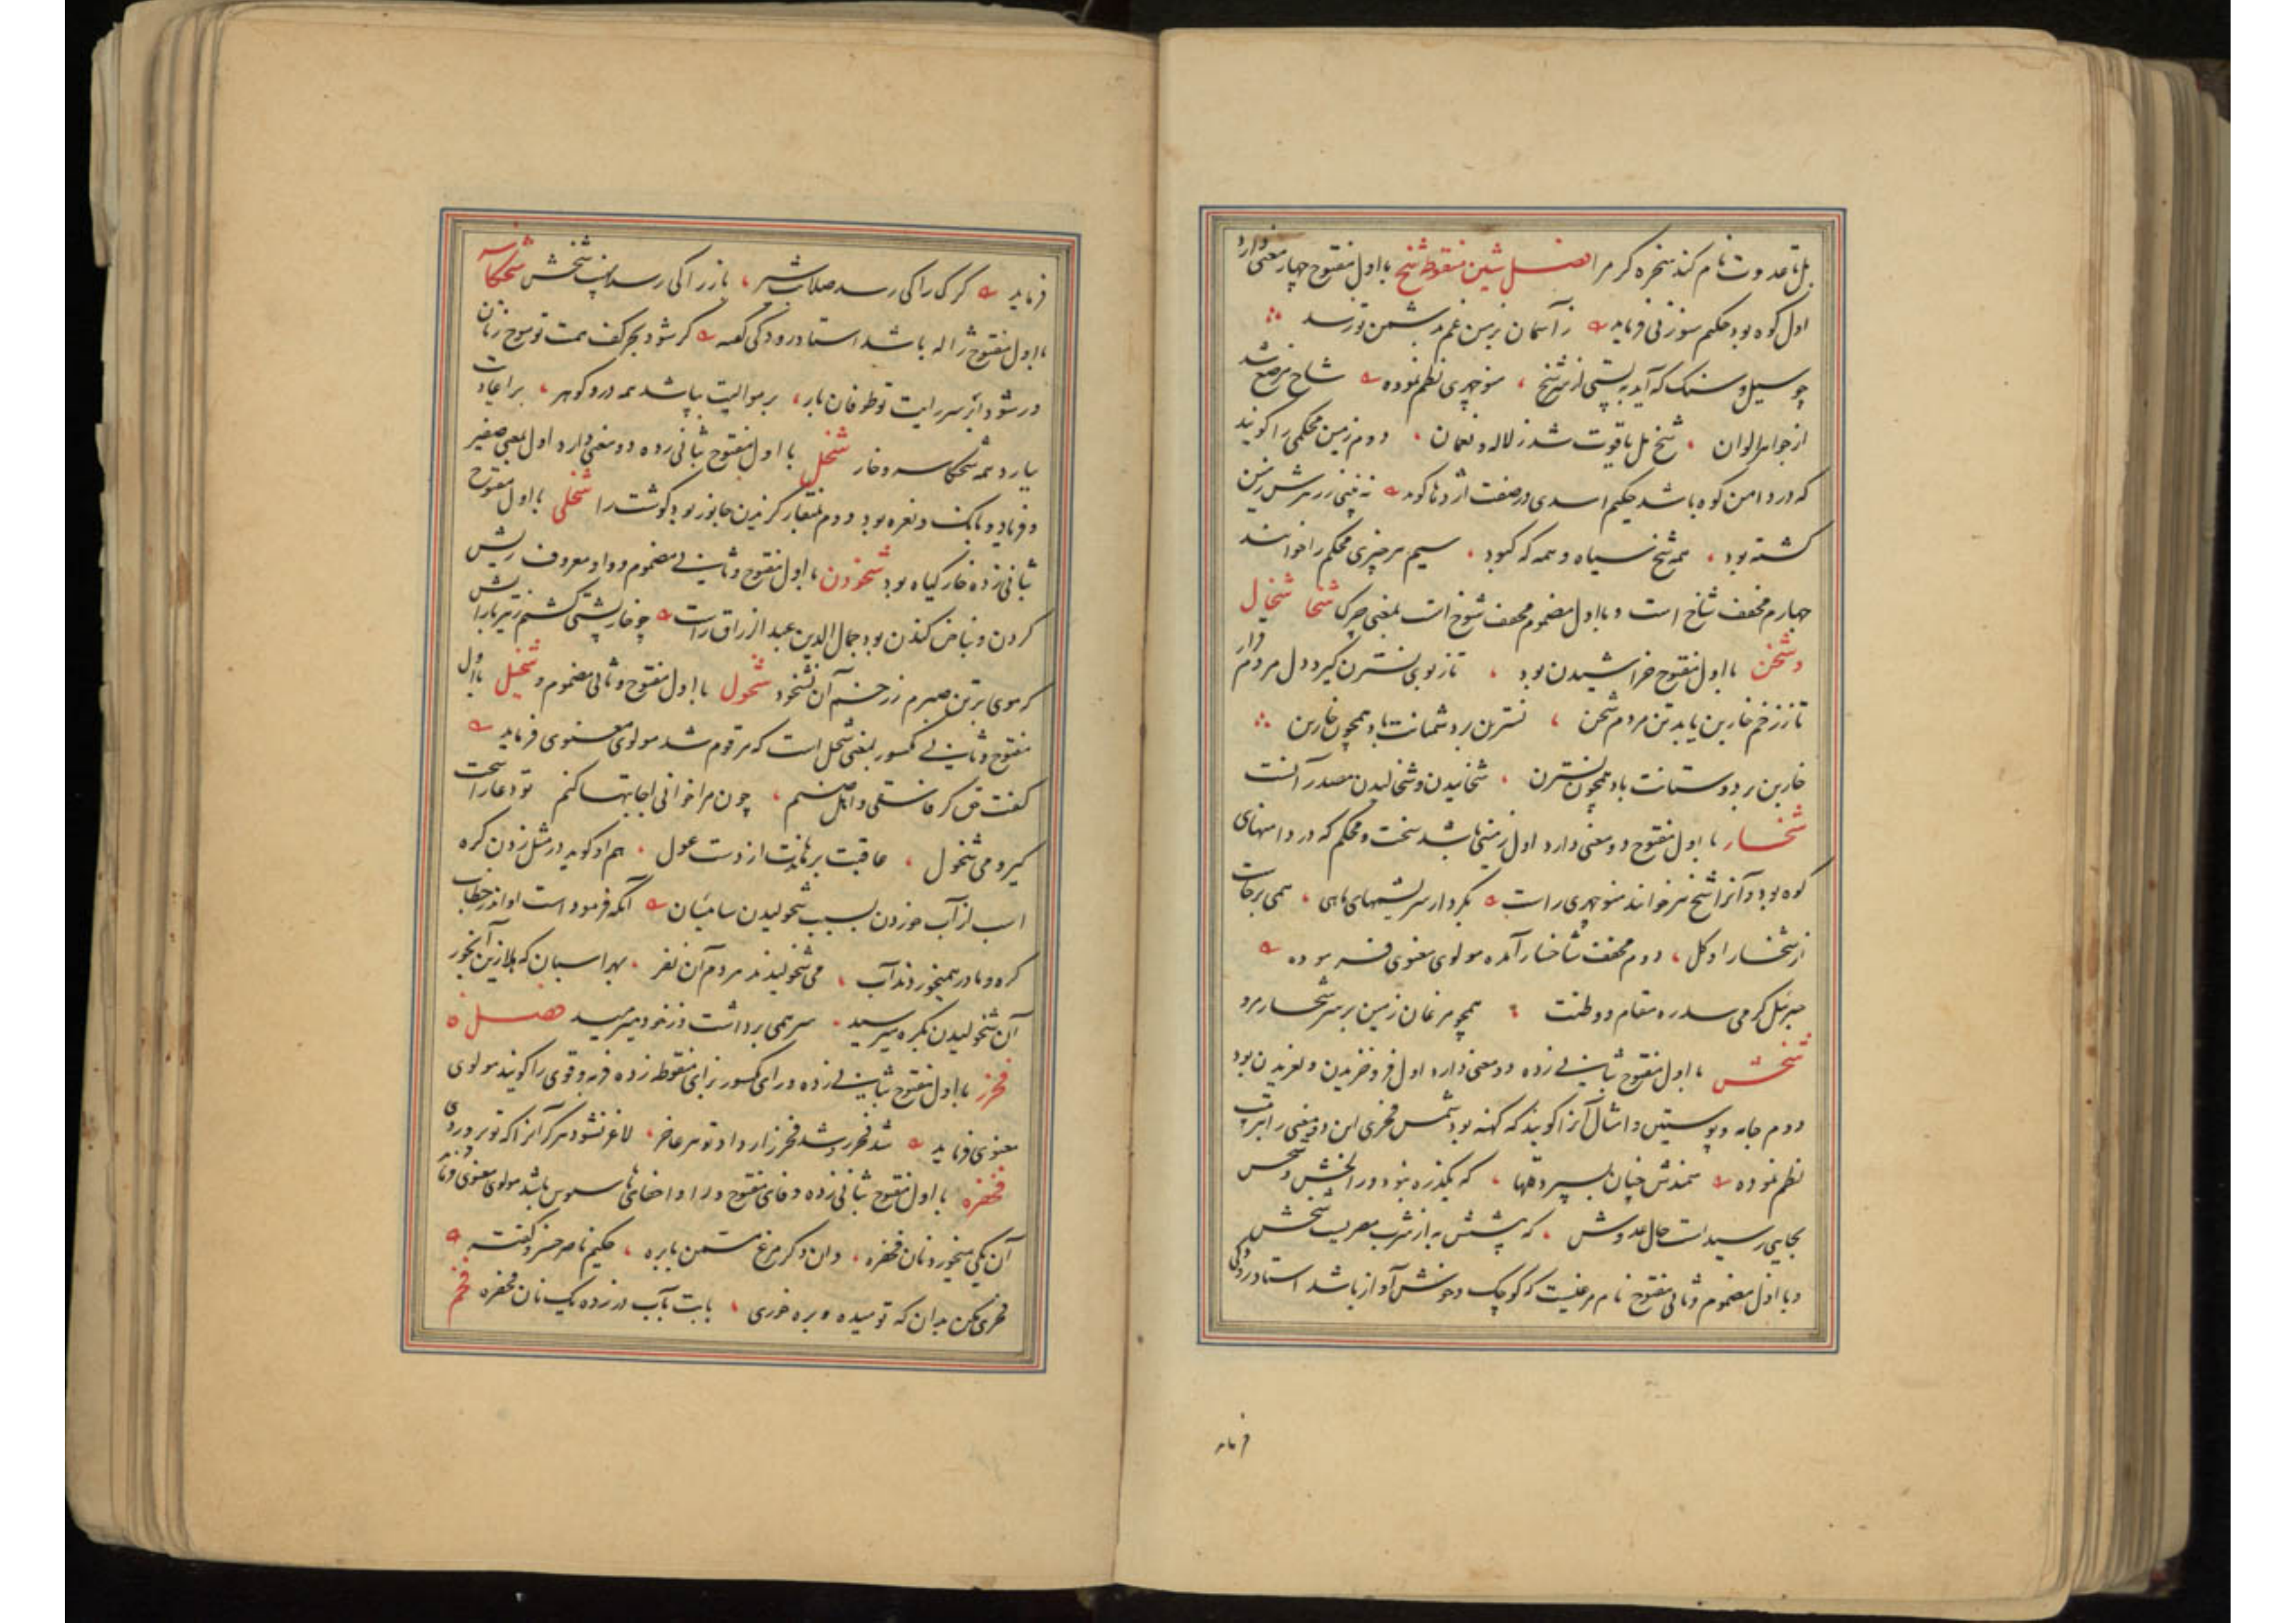 بل تا عدوت نام کند سخره کر مرا فصل شین منقوطه شخ با اول مفتوح چهار معنی دارد
اول کوه بود حکیم سوزنی فرماید ز آسمان بزمین غم بدشمن تو رسد
چو سیل و سنک که آید به پستی از سر شخ ، منوچهری نظم نموده شاخ مرصع شد
از جواهر الوان ، شخ مل یاقوت شد ز لاله و نعمان ، دوم زمین محکمی را کویند
که در دامن کوه باشد حکیم اسدی در صفت اژدها کوید زمین
کشته بود ، همه شخ سیاه و همه که کبود ، سیم هر چیزی محکم را خوانند
چهارم مخفف شاخ است و با اول مضموم مخفف شوخ است بمعنی چرک شخا شخال
و شخن با اول مفتوح خراشیدن بود ، تا ز بوی نسترن کیرد دل مردم قرار
تا ز زخم خار بن یابد تن مردم شخن ، نسترن بر دشمنانت باد همچون خار بن
خار بن بر دوستانت باد همچون نسترن ، شخاییدن و شخالیدن مصدر آنست
شخسار با اول مفتوح دو معنی دارد اول زمینی باشد سخت و محکم که در دامنهای
کوه بود و آنرا شخ نیز خوانند منوچهری راست بکردار سریشمهای ماهی ، همی برخاست
از شخسار او کل ، دوم مخفف شاخسار آمده مولوی معنوی فرموده
جبرئیل کرمی سدره مقام و وطنت همچو مرغان زمین بر سر شخسار مرو
شخش با اول مفتوح بثانی زده دو معنی دارد اول فرو خزیدن و لغزیدن بود
دوم جامه و پوستین و امثال آنرا کویند که کهنه بود شمس فخری این دو معنی را بترتیب
نظم نموده سمندش چنان بسپرد که نبود ورا لخش و شخش
بجایی رسیدست حال عدوش ، که پشمش به از شرب مصریست شخش
و با اول مضموم و ثانی مفتوح نام مرغیست که کوچک و خوش آواز باشد استاد رودکی
فرماید
فرماید کرک را کی رسد صلابت شیر ، باز را کی رسد نهیب شخش شخکاسه
با اول مفتوح ژاله باشد استاد رودکی کفته کر شود بحر کف همت تو موج زنان
ور شود ابر سر رایت تو طوفان بار ، بر موالیت بپاشد همه در و کوهر ، بر اعادیت
ببارد همه شخکاسه و خار شخل با اول مفتوح بثانی زده دو معنی دارد اول بمعنی صفیر
و فریاد و بانک و نعره بود و دوم بمنقار کزیدن جانور بود کوشت را شخلی با اول مفتوح
بثانی زده خار کیاه بود شخودن با اول مفتوح و ثانی مضموم و واو معروف ریش
کردن و بناخن کندن بود جمال الدین عبد الرزاق راست چو خارپشتی کشتم ز تیر بارانش
که موی بر تن صبرم ز زخم آن بشخود شخول با اول مفتوح و ثانی مضموم و شخیل با اول
مفتوح و ثانی مکسور بمعنی شخل است که مرقوم شد مولوی معنوی فرماید
کفت حق کر فاسقی و اهل صنم ، چون مرا خوانی اجابتها کنم تو دعا را سخت
کیر و می شخول ، عاقبت برهاندت از دست غول ، هم او کوید در مثل زدن کره
اسب از آب خوردن بسبب شخولیدن سایسان آنکه فرمودست او اندر خطاب
کره و مادر همیخوردند آب ، می شخولیدند مردم آن نفر ، بهر اسبان که هلا زین آبخور
آن شخولیدن بکره میرسید ، سر همی برداشت و ز خود میرمید فصل فا
فخز با اول مفتوح بثانی زده و رای مکسور بزای منقوطه زده فربه و قوی را کویند مولوی
معنوی فرماید لاغر نشود هر کز آنرا که تو پروردی
فخفره با اول مفتوح بثانی زده و فای مفتوح و را و اخفای ها سبوس باشد مولوی معنوی
آن یکی میخورد نان فخفره ، وان دکر مرغ مسمن با بره ، حکیم ناصر خسرو کفته
فخری مکن بدان که تو میده و بره خوری ، بابت بآب در زده یک نان فخفره فخم